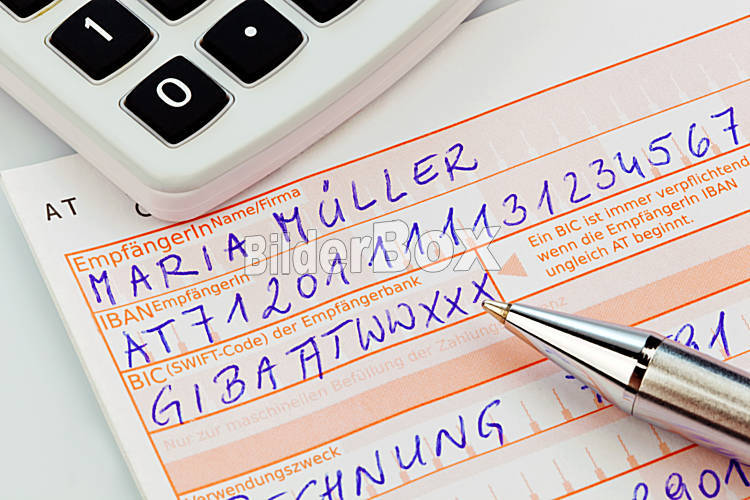 1
0
AT
EmpfängerIn Name/Firma
MARIA MÜLLER
IBAN EmpfängerIn
AT71201111131234567
BIC (SWIFT-Code) der Empfängerbank
GIBAATWWXXX
Ein BIC ist immer verpflichtend
wenn die EmpfängerIn IBAN
ungleich AT beginnt.
Nur zur maschinellen Befüllung der Zahlungsreferenz
Verwendungszweck
BilderBOX